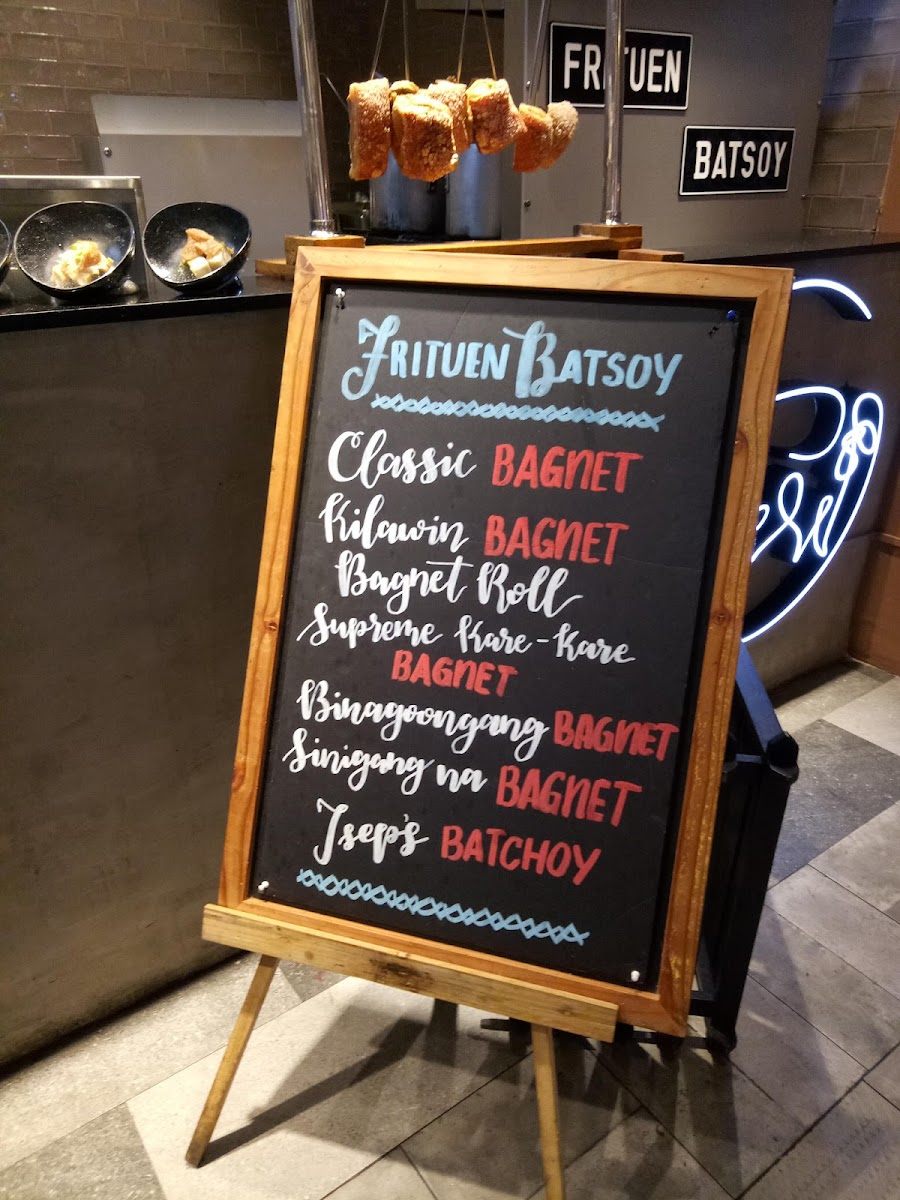 FRITUEN
BATSOY
Frituen Batsoy
Classic BAGNET
Kilawin BAGNET
Bagnet Roll
Supreme Kare-Kare
BAGNET
Binagoongang BAGNET
Sinigang na BAGNET
Jsep's BATCHOY